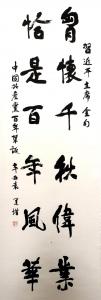 胷懷千秋偉業
習近平主席金句
恰是百年風華
中國共產黨百年華誕